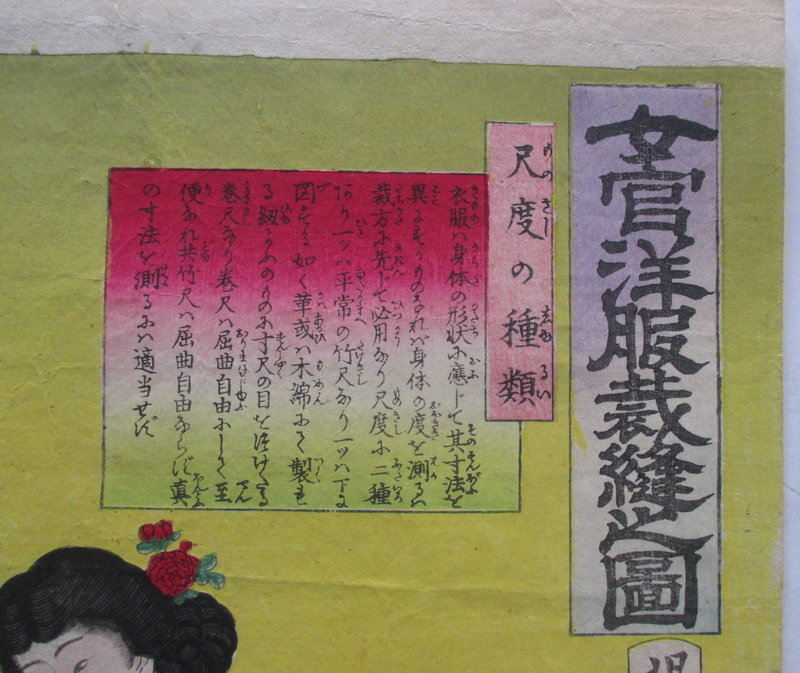 女官洋服裁縫之圖
尺度の種類
ものさし しゅるい
衣服ハ身体の形状に應じて其寸法を
異にするものなれバ身体の度を測るハ
裁方に先下て必用なり尺度に二種
あり一ツハ平常の竹尺なり一ツハ下に
図する如く革或ハ木綿にて製せ
る紐やふのものに寸尺の目を付けたる
巻尺なり巻尺ハ屈曲自由にして至
便なれ共竹尺ハ屈曲自由ならず真
の寸法を測るにハ適当せず